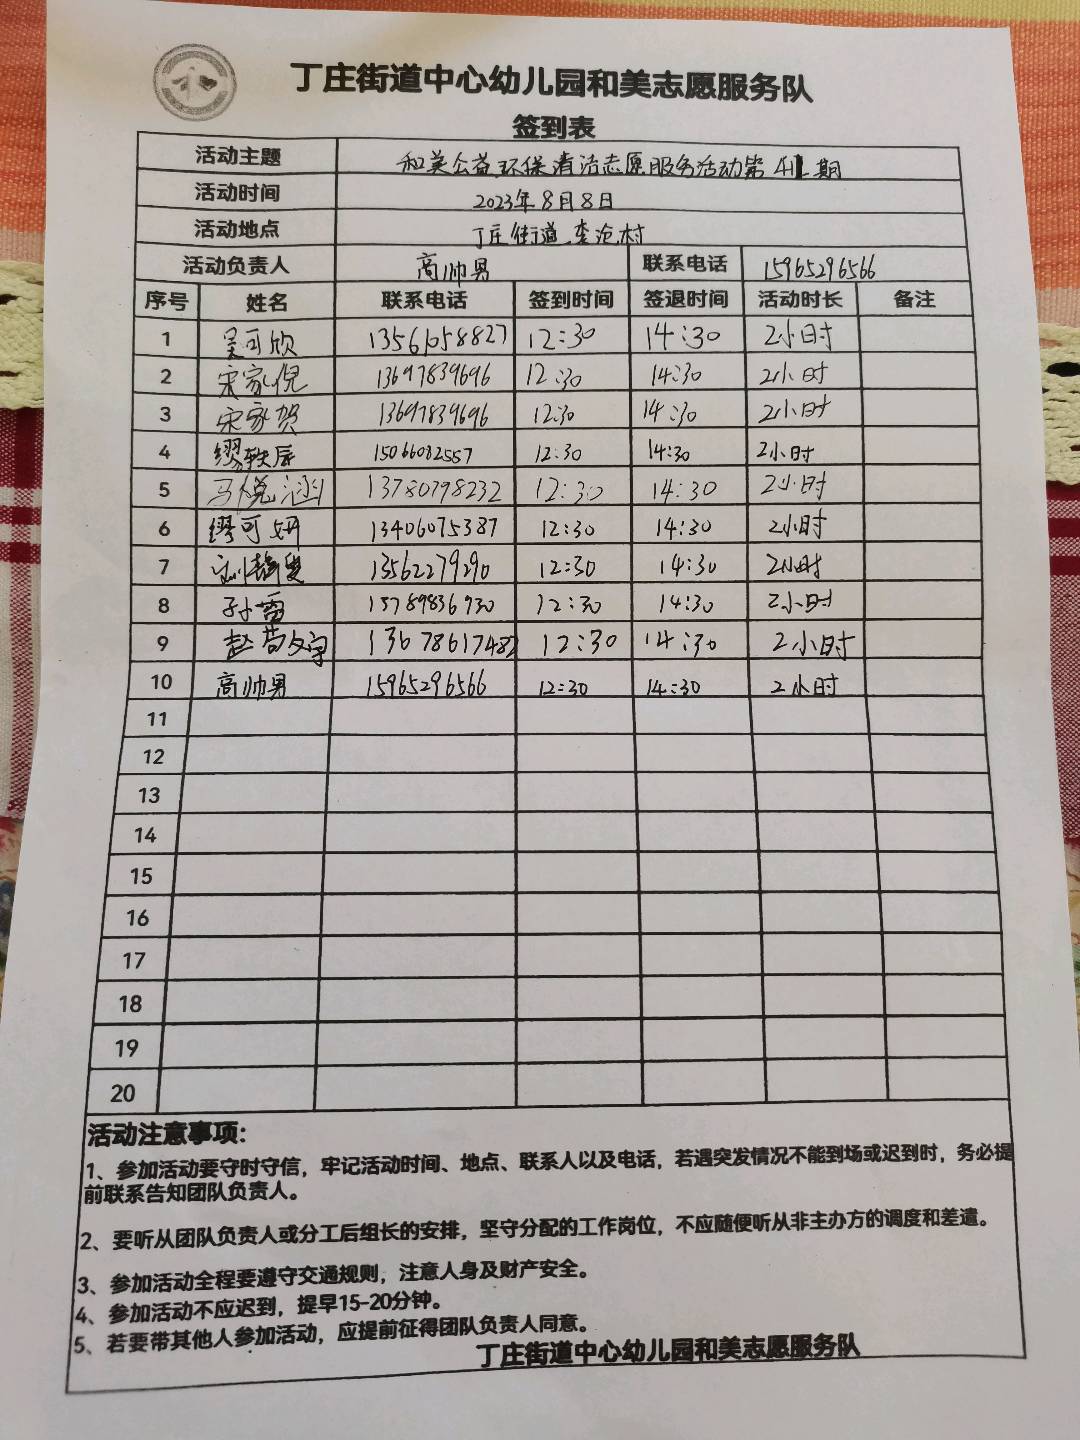 和
丁庄街道中心幼儿园和美志愿服务队
签到表
活动主题 和美公益,环保清洁志愿服务活动第 期
活动时间 2023年8月8日
活动地点 丁庄街道 村
活动负责人 高帅男 联系电话 15965296566
序号 姓名 联系电话 签到时间 签退时间 活动时长 备注
1 吴可欣 13561058827 12:30 14:30 2小时
2 宋家倪 13697839696 12:30 14:30 2小时
3 宋家贺 13697839696 12:30 14:30 2小时
4 缪轶辰 15066082557 12:30 14:30 2小时
5 马悦涵 13780798232 12:30 14:30 2小时
6 缪可妍 13406075387 12:30 14:30 2小时
7 13562279290 12:30 14:30 2小时
8 孙雷 15789836930 12:30 14:30 2小时
9 赵 13678617482 12:30 14:30 2小时
10 高帅男 15965296566 12:30 14:30 2小时
11
12
13
14
15
16
17
18
19
20
活动注意事项:
1、参加活动要守时守信，牢记活动时间、地点、联系人以及电话，若遇突发情况不能到场或迟到时，务必提
前联系告知团队负责人。
2、要听从团队负责人或分工后组长的安排，坚守分配的工作岗位，不应随便听从非主办方的调度和差遣。
3、参加活动全程要遵守交通规则，注意人身及财产安全。
4、参加活动不应迟到，提早15-20分钟。
5、若要带其他人参加活动，应提前征得团队负责人同意。
丁庄街道中心幼儿园和美志愿服务队